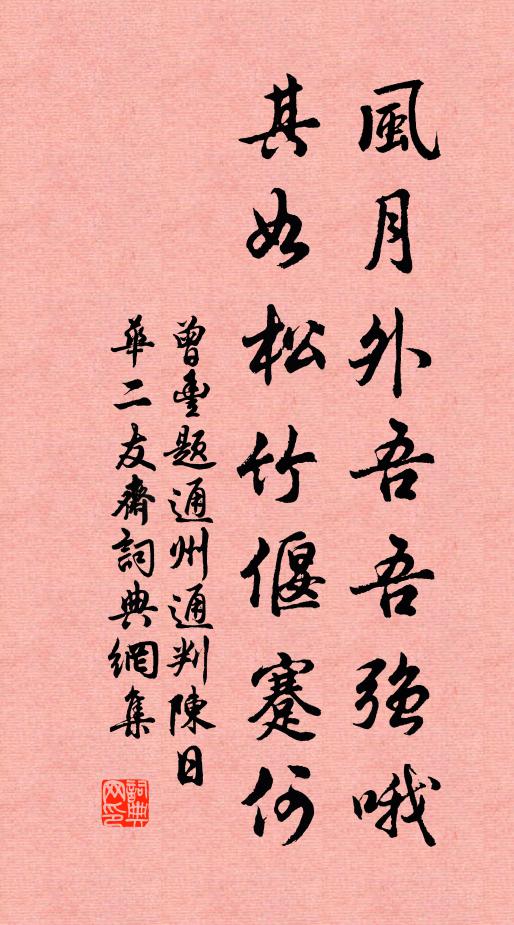 風月外吾吾強哦
其如松竹偃蹇何
曾豐題通州通判陳日
華二友齋詞典網集
詞典
网印